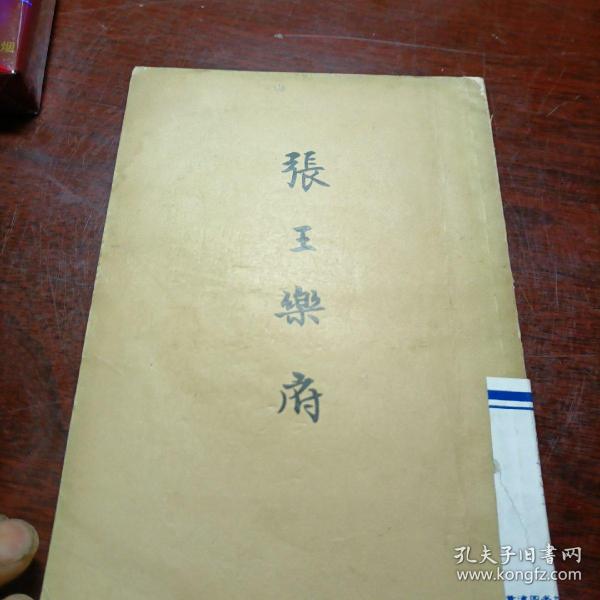 張王樂府
烟
孔夫子旧書网
www.kongfz.com